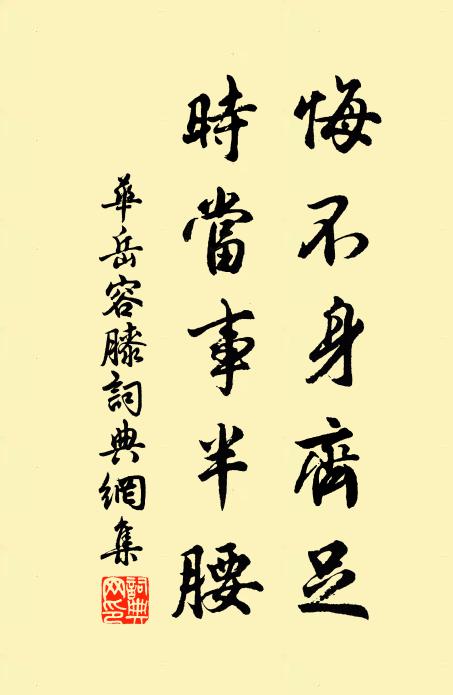 悔不身齊足
時當事半腰
華岳容膝詞典網集
詞典網印